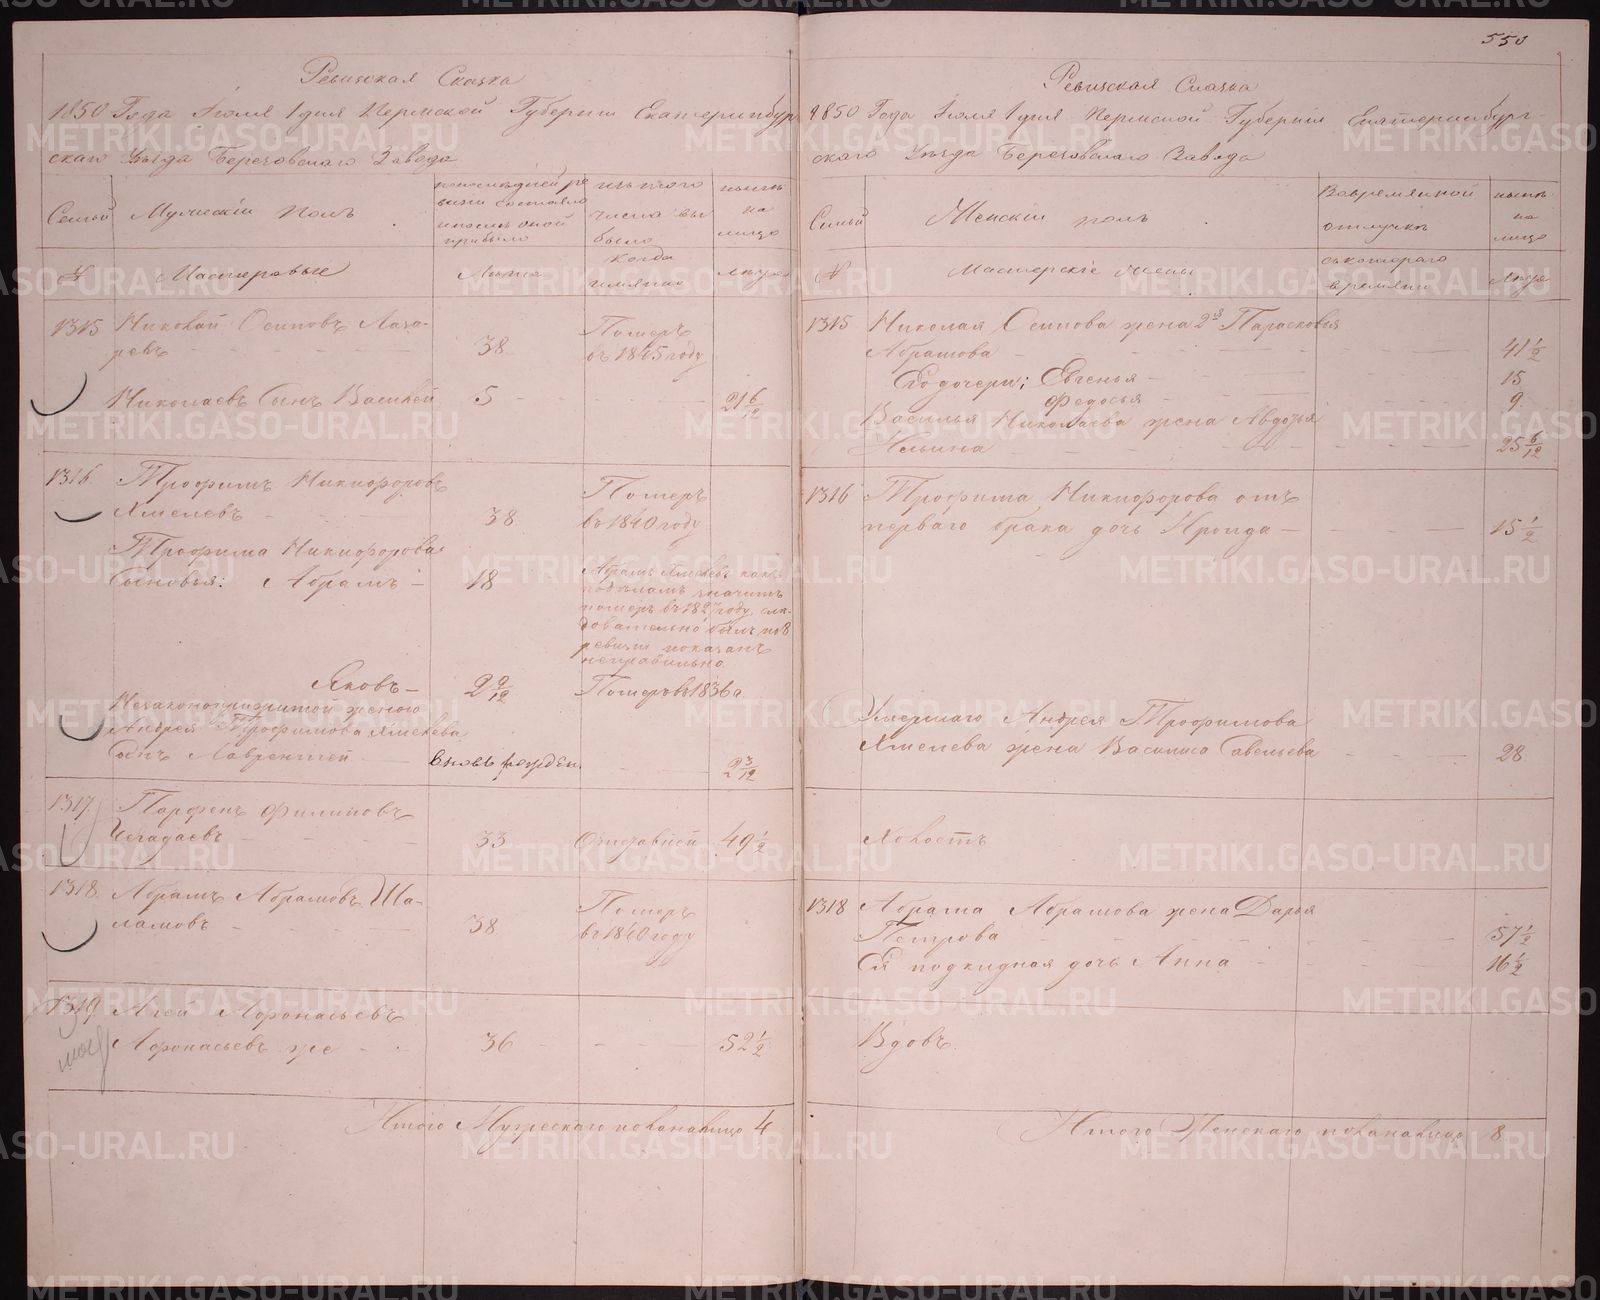 Ревизская Сказка
1850 Года Июля 1 дня Пермской Губернии Екатеринбур
скаго Уезда Березовскаго Завода
Семьи
Мужескiй полъ
последней ре
визiи состояло
и после оной
прибыло
изъ того
числа вы
было
ныне
на
лицо
№
Мастеровые
Лета
Когда
имянно
Лета
1315
Николай Осиповъ Лаза-
ревъ
38
Померъ
въ 1845 году
Николаевъ Сынъ Василей
5
21 6/12
1316
Трофимъ Никифоровъ
Хмелевъ
38
Померъ
въ 1840 году
Трофима Никифорова
Сыновья: Абрамъ
18
Абрамъ Хмелевъ какъ
по деламъ значитъ
померъ въ 1827 году, сле-
довательно былъ по 8
ревизiи показанъ
неправильно
Яковъ
2 9/12
Померъ въ 1836 г
Незаконоприжитой женою
Андрея Трофимова Хмелева
сынъ Лаврентей
вновь рожден
2 3/12
1317
Парфенъ Филиповъ
Чегадаевъ
33
49 1/2
1318
Абрамъ Абрамовъ Ша-
ламовъ
38
Померъ
въ 1840 году
1319
Агей Афонасьевъ
Афонасьевъ же
36
52 1/2
Итого Мужескаго пола налицо 4
550
Ревизская Сказка
1850 Года Июля 1 дня Пермской Губернiи Екатеринбург-
скаго Уезда Березовскаго Завода
Семьи
Женскiй полъ
Во временной
отлучке
ныне
на
лицо
№
Мастерскiе жены
съ котораго
времяни
Лета
1315
Николая Осипова жена 2я Парасковья
Абрамова
41 1/2
Его дочери: Евгенья
15
Федосья
9
Василья Николаева жена Авдотья
Ильина
25 6/12
1316
Трофима Никифорова отъ
перваго брака дочь Ираида
15 1/2
Умершаго Андрея Трофимова
Хмелева жена Василиса Савельева
28
Холостъ
1318
Абрама Абрамова жена Дарья
Петрова
57 1/2
Ея подкидная дочь Анна
16 1/2
Вдовъ
Итого Женскаго пола налицо 8
METRIKI.GASO-URAL.RU